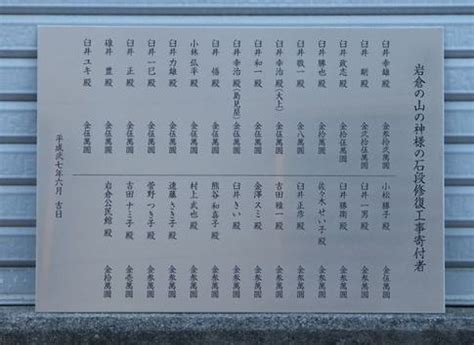 岩倉の山の神様の石段修復工事寄付者
臼井 幸雄 殿 金参拾弐萬圓
臼井 剛 殿 金弐拾伍萬圓
臼井 政志 殿 金拾伍萬圓
臼井 勝也 殿 金拾伍萬圓
臼井 敬一 殿 金八萬圓
臼井 幸治 殿(大上) 金伍萬圓
臼井 和一 殿 金伍萬圓
臼井 幸治 殿(島見屋) 金伍萬圓
臼井 悟 殿 金伍萬圓
小林 弘平 殿 金伍萬圓
臼井 力雄 殿 金伍萬圓
臼井 一巳 殿 金伍萬圓
臼井 正 殿 金伍萬圓
碓井 豊 殿 金伍萬圓
臼井 ユキ 殿 金伍萬圓
小松 勝子 殿 金参萬圓
臼井 一男 殿 金参萬圓
臼井 勝衛 殿 金参萬圓
佐々木 せい子 殿 金参萬圓
臼井 正彦 殿 金参萬圓
吉田 稚一 殿 金参萬圓
金澤 スミ 殿 金参萬圓
臼井 きい 殿 金参萬圓
熊谷 和喜子 殿 金参萬圓
村上 武也 殿 金参萬圓
遠藤 さき子 殿 金参萬圓
菅野 つき子 殿 金参萬圓
吉田 ナミ子 殿 金壱萬圓
岩倉公民館 殿 金拾萬圓
平成弐七年六月 吉日